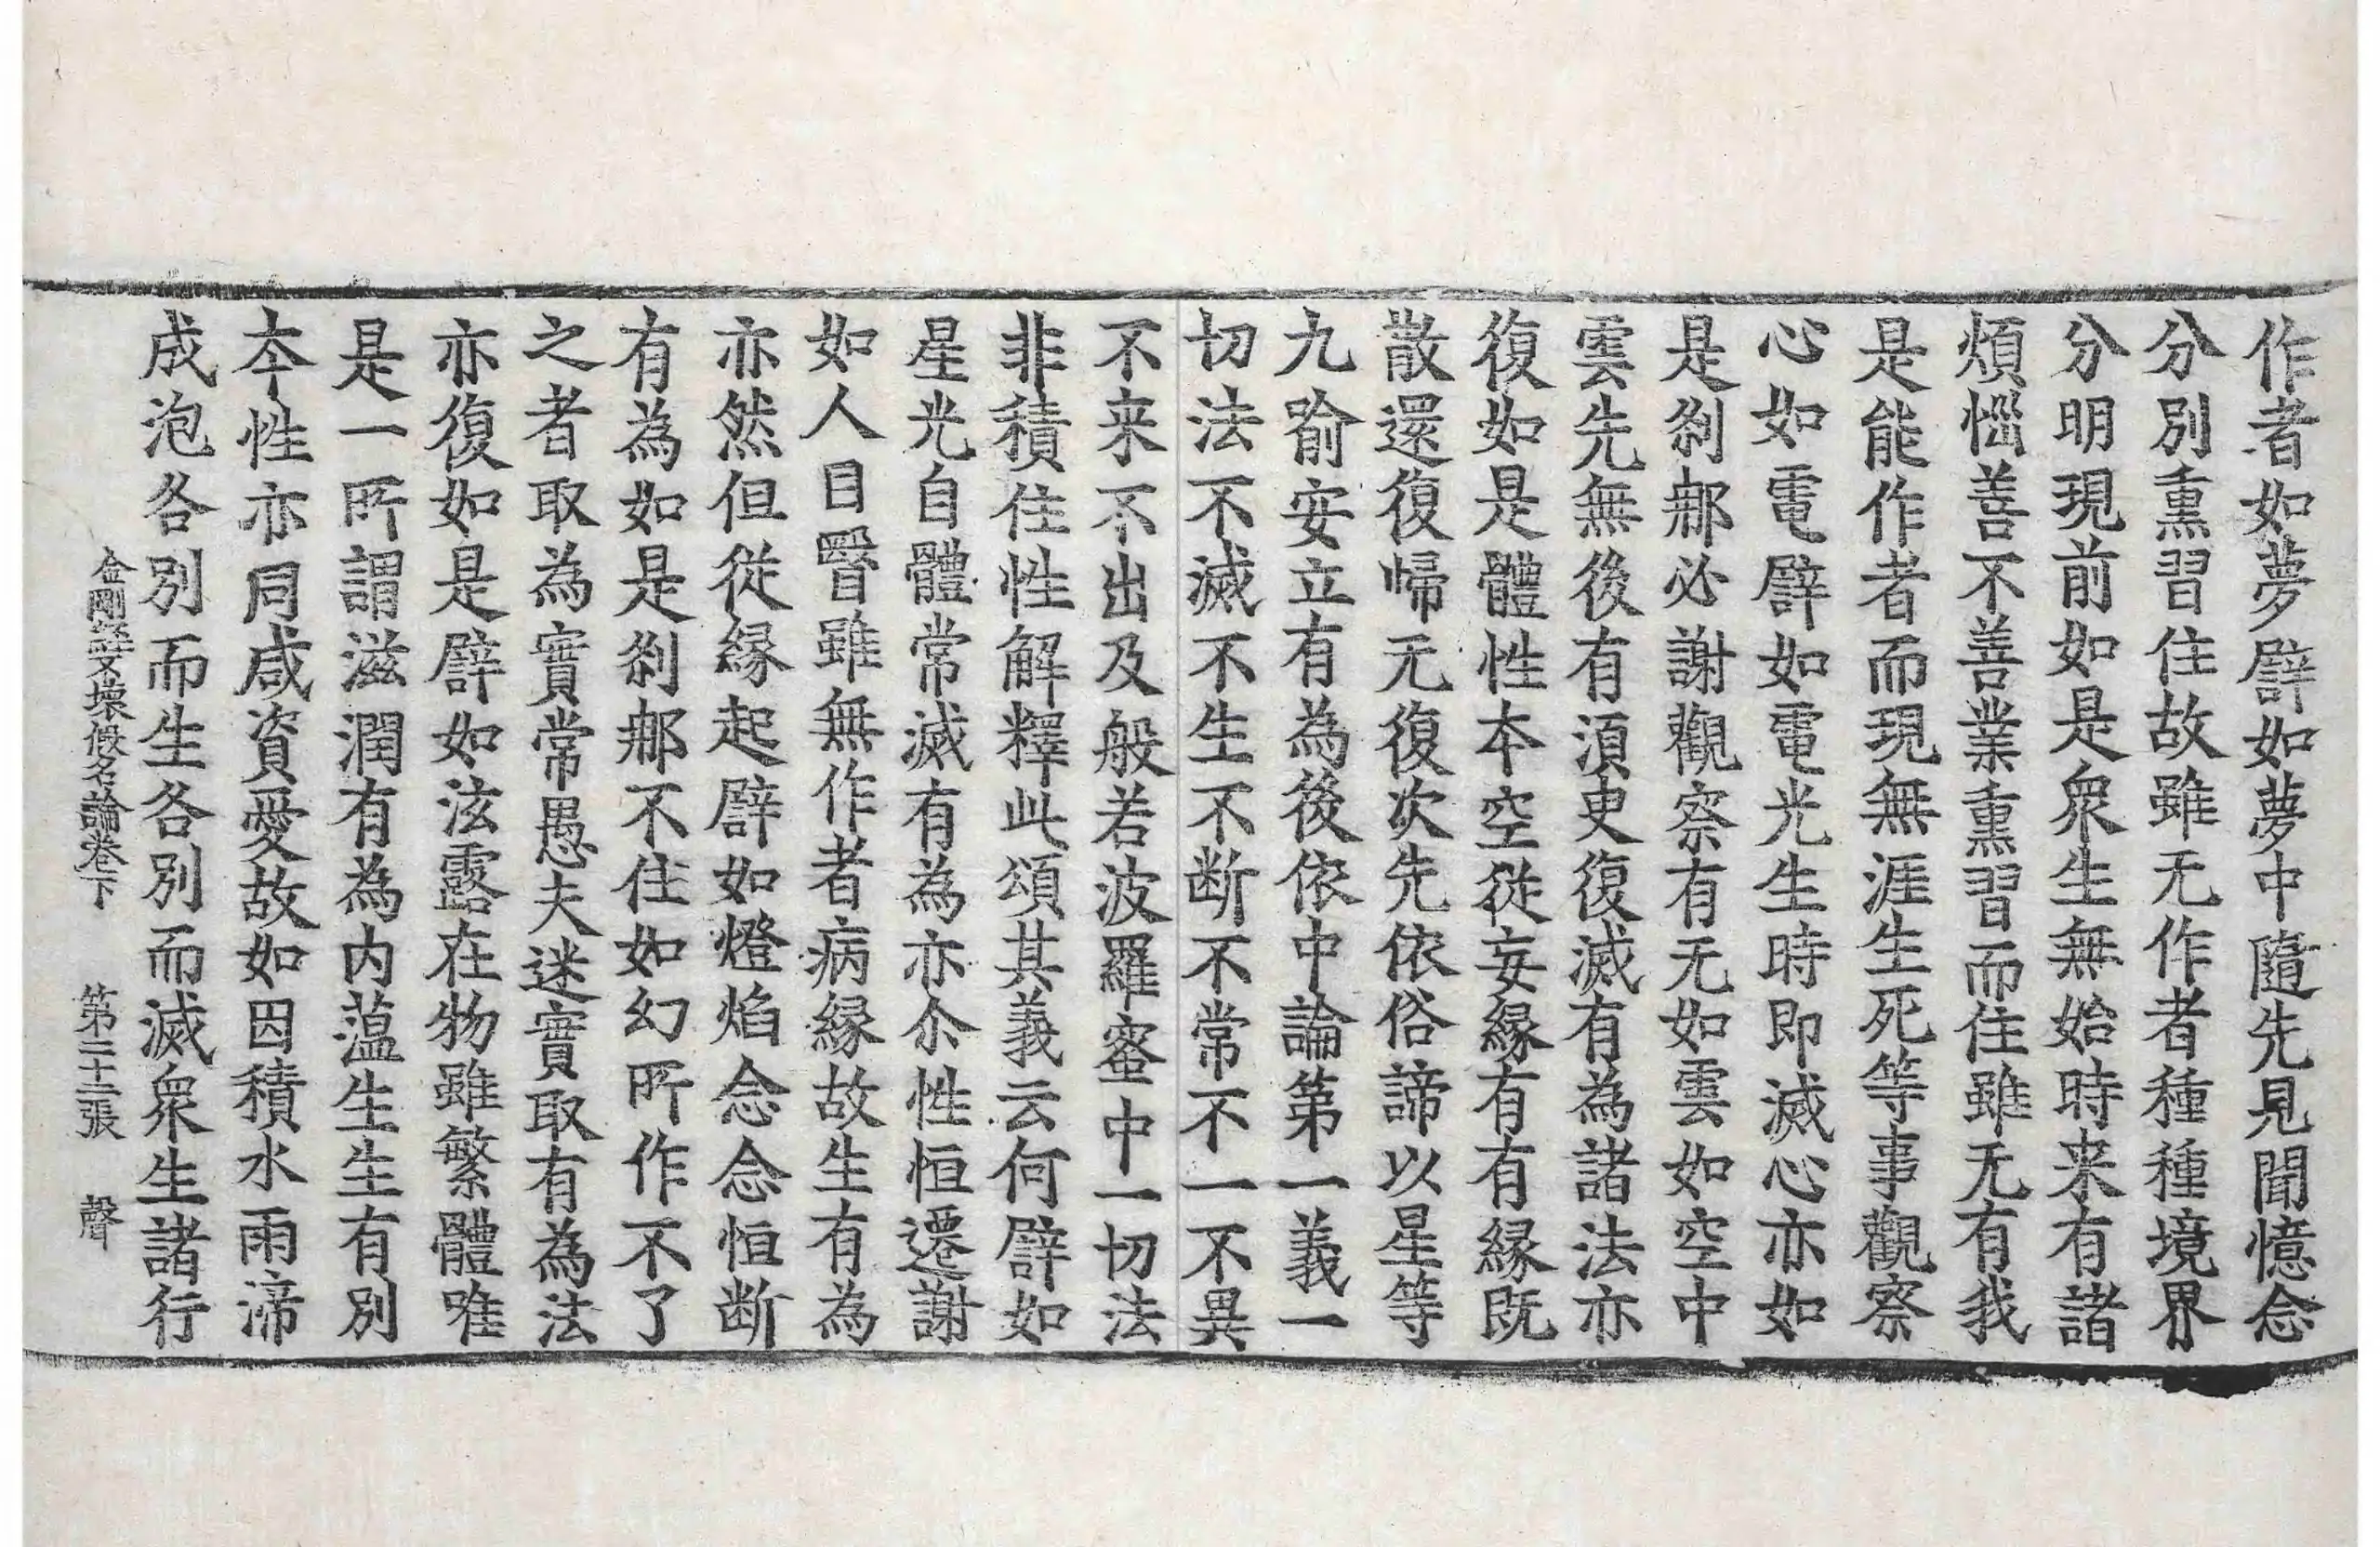 作者如夢譬如夢中隨先見聞憶念
分別熏習住故雖无作者種種境界
分明現前如是衆生無始時来有諸
煩惱善不善業熏習而住雖无有我
是能作者而現無涯生死等事觀察
心如電譬如電光生時即滅心亦如
是刹那必謝觀察有无如雲如空中
雲先無後有湏臾復滅有為諸法亦
復如是體性本空從妄緣有有緣既
散還復歸无復次先依俗諦以星等
九喻安立有為後依中論第一義一
切法不滅不生不断不常不一不異
不来不出及般若波羅蜜中一切法
非積住性解釋此頌其義云何譬如
星光自體常滅有為亦尒性恒遷謝
如人目瞖雖無作者病緣故生有為
亦然但從緣起譬如燈焰念念恒断
有為如是刹那不住如幻所作不了
之者取為實常愚夫迷實取有為法
亦復如是譬如泫露在物雖繁體唯
是一所謂滋潤有為内薀生生有別
本性亦同咸資愛故如因積水雨渧
成泡各別而生各別而滅衆生諸行
金剛經破取著不壞假名論卷下 第二十二張 聲